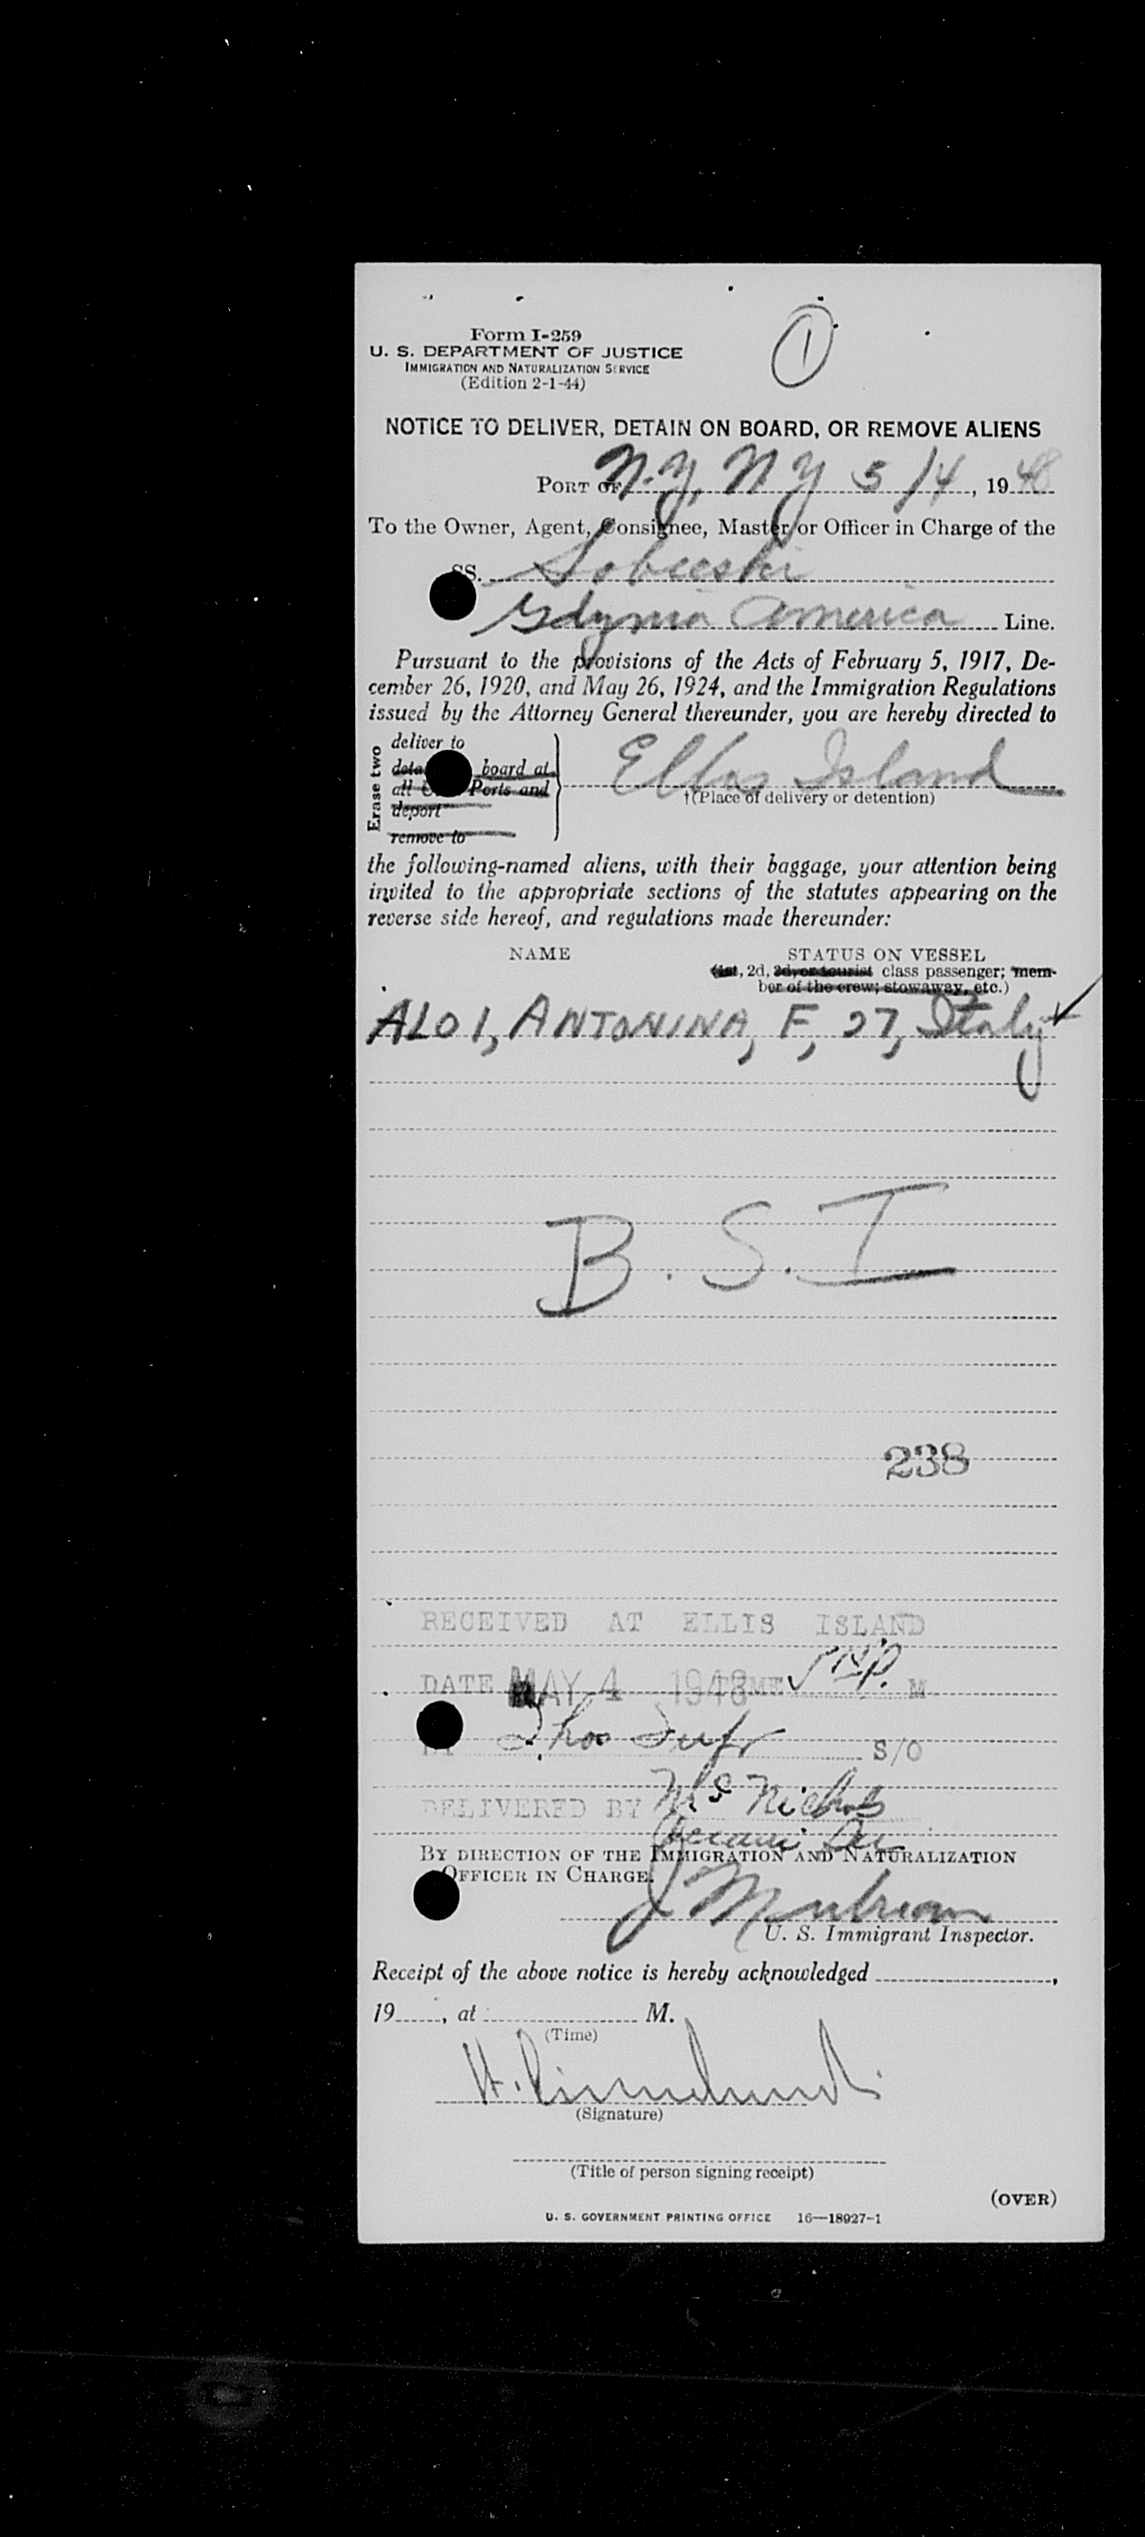 1
Form I-259
U. S. DEPARTMENT OF JUSTICE
IMMIGRATION AND NATURALIZATION SERVICE
(Edition 2-1-44)
NOTICE TO DELIVER, DETAIN ON BOARD, OR REMOVE ALIENS
PORT OF N.Y, N Y 5/4, 1948
To the Owner, Agent, Consignee, Master, or Officer in Charge of the
SS. Sobieski
Gdynia America Line.
Pursuant to the provisions of the Acts of February 5, 1917, De-
cember 26, 1920, and May 26, 1924, and the Immigration Regulations
issued by the Attorney General thereunder, you are hereby directed to
Erase two
deliver to
board at
all Ports and
deport
remove to
Ellis Island
†(Place of delivery or detention)
the following-named aliens, with their baggage, your attention being
invited to the appropriate sections of the statutes appearing on the
reverse side hereof, and regulations made thereunder:
NAME STATUS ON VESSEL
(1st, 2d, 3d, or tourist class passenger; mem-
ber of the crew; stowaway, etc.)
ALOI, ANTONINA, F, 27, Italy
B. S. I
238
RECEIVED AT ELLIS ISLAND
DATE MAY 4 1948 TIME P. M
Thos S/O
DELIVERED BY Mc Nichols
BY DIRECTION OF THE IMMIGRATION AND NATURALIZATION
OFFICER IN CHARGE.
U. S. Immigrant Inspector.
Receipt of the above notice is hereby acknowledged ,
19 , at M.
(Time)
H.
(Signature)
(Title of person signing receipt)
(OVER)
U. S. GOVERNMENT PRINTING OFFICE 16—18927-1